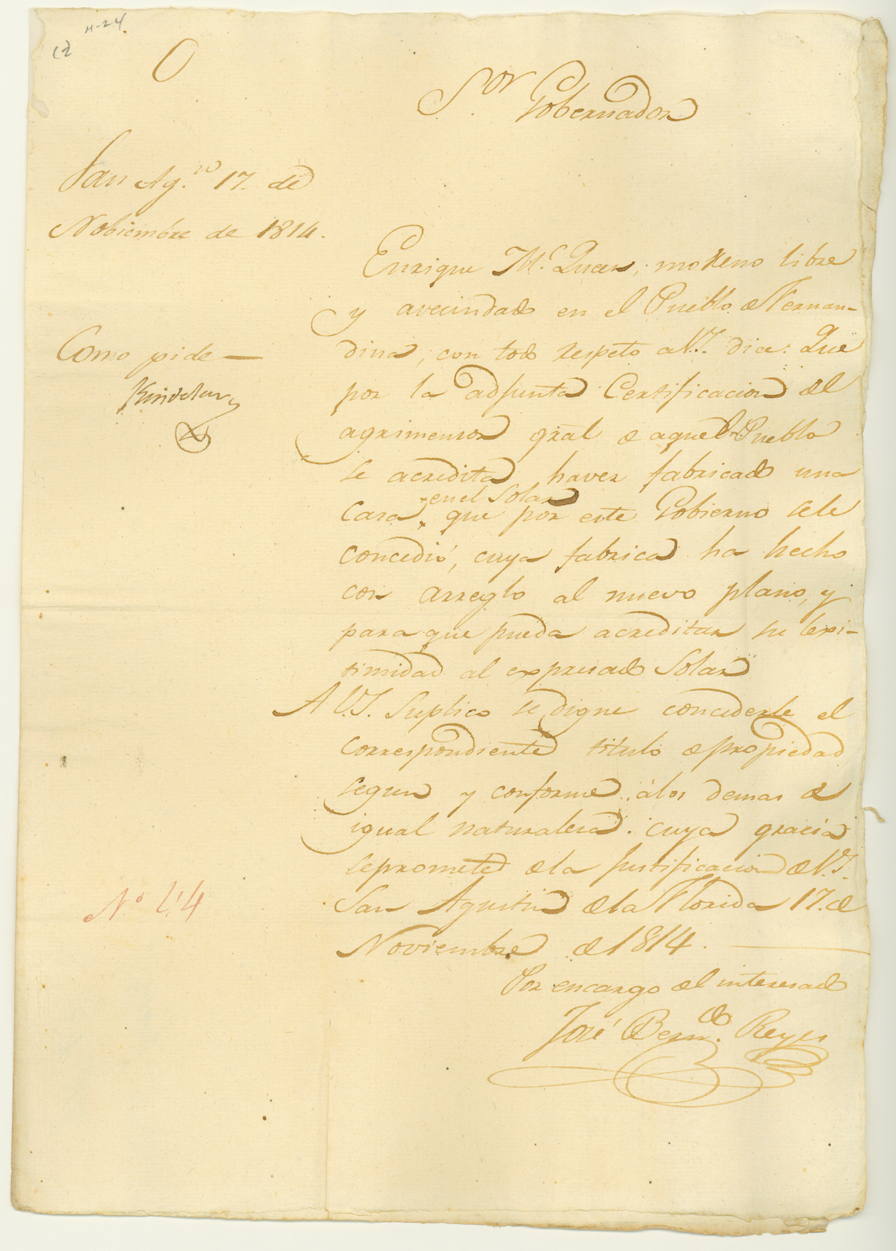 H-24
(2
0
S.or Gobernador
San Ag.n 17. de
Nobiembre de 1814.
Como pide —
Kindelan
Enrique M.c Quen, moreno libre
y avecindado en el Pueblo de Fernan-
dina, con todo respeto a V.S. dice: Que
por la adjunta Certificacion del
agrimensor gral de aquel Pueblo
se acredita haver fabricado una
casa en el Solar que por este Gobierno sele
concedió, cuya fabrica ha hecho
con arreglo al nuevo plano, y
para que pueda acreditar su lexi-
timidad al expresado Solar
A V.S. Suplico se digne concederle el
correspondiente titulo de propiedad
segun y conforme álos demas de
igual naturaleza. cuya gracia
se promete de la Justificacion de V.S.
San Agustin de la Florida 17. de
Noviembre de 1814.
Por encargo del interesado
José Bern.do Reyes
N.o 44